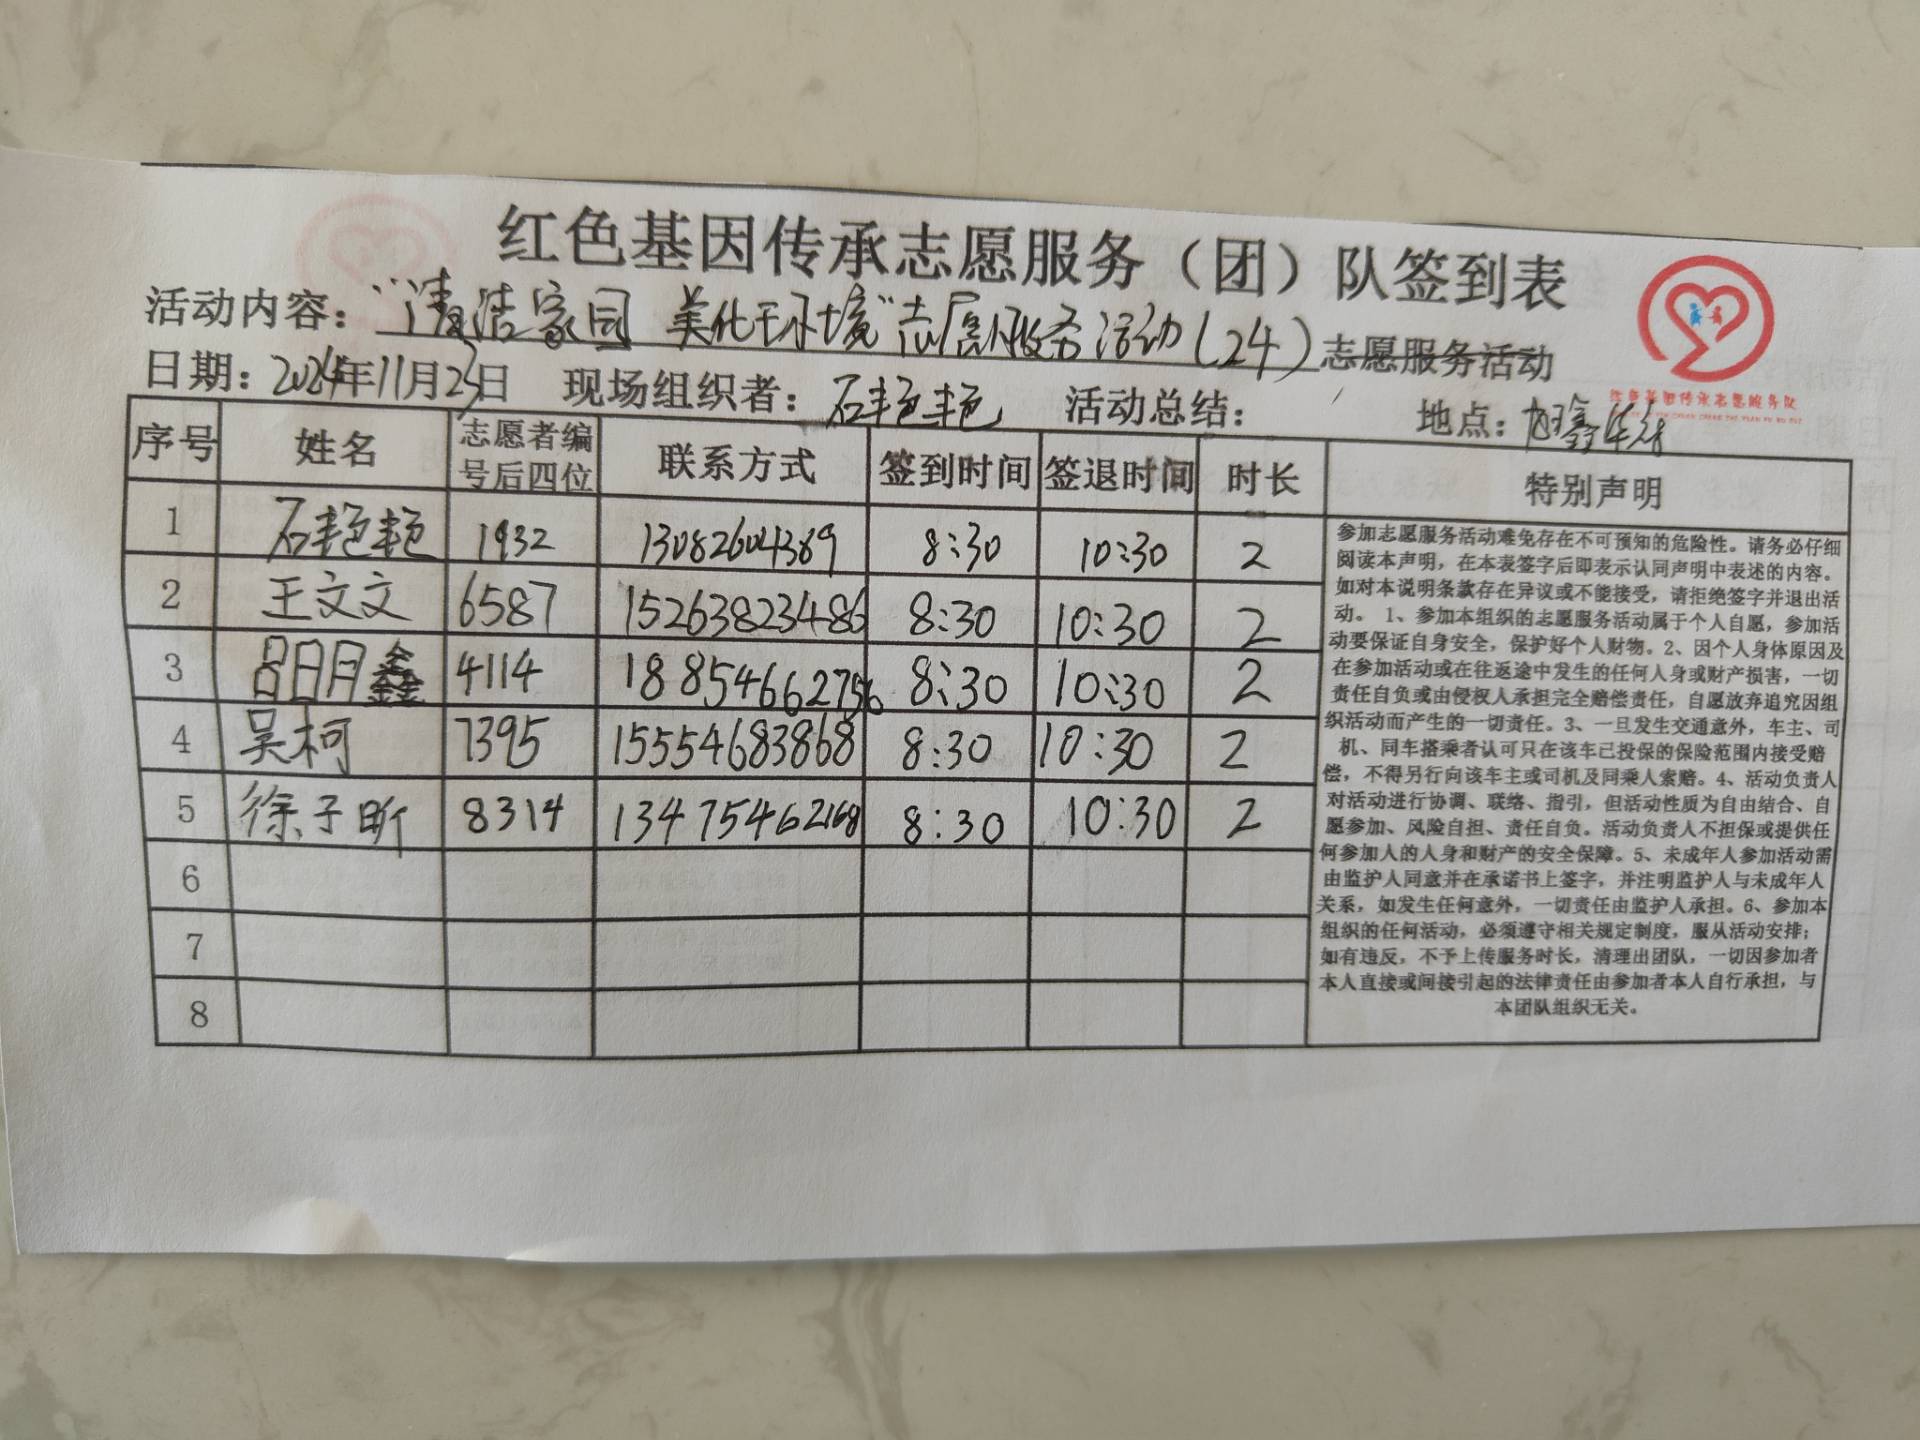 红色基因传承志愿服务（团）队签到表
活动内容："清洁家园 美化环境"志愿服务活动(24)志愿服务活动
日期：2024年11月23日 现场组织者：石艳艳 活动总结： 地点：
红色基因传承志愿服务队
序号 姓名 志愿者编号后四位 联系方式 签到时间 签退时间 时长 特别声明
1 石艳艳 1932 13082604389 8:30 10:30 2
2 王文文 6587 15263823486 8:30 10:30 2
3 吕明鑫 4114 18854662756 8:30 10:30 2
4 吴柯 7395 15554683868 8:30 10:30 2
5 徐子昕 8314 13475462168 8:30 10:30 2
6
7
8
参加志愿服务活动难免存在不可预知的危险性。请务必仔细
阅读本声明，在本表签字后即表示认同声明中表述的内容。
如对本说明条款存在异议或不能接受，请拒绝签字并退出活
动。 1、参加本组织的志愿服务活动属于个人自愿，参加活
动要保证自身安全，保护好个人财物。2、因个人身体原因及
在参加活动或在往返途中发生的任何人身或财产损害，一切
责任自负或由侵权人承担完全赔偿责任，自愿放弃追究因组
织活动而产生的一切责任。3、一旦发生交通意外，车主、司
机、同车搭乘者认可只在该车已投保的保险范围内接受赔
偿，不得另行向该车主或司机及同乘人索赔。4、活动负责人
对活动进行协调、联络、指引，但活动性质为自由结合、自
愿参加、风险自担、责任自负。活动负责人不担保或提供任
何参加人的人身和财产的安全保障。5、未成年人参加活动需
由监护人同意并在承诺书上签字，并注明监护人与未成年人
关系，如发生任何意外，一切责任由监护人承担。6、参加本
组织的任何活动，必须遵守相关规定制度，服从活动安排；
如有违反，不予上传服务时长，清理出团队，一切因参加者
本人直接或间接引起的法律责任由参加者本人自行承担，与
本团队组织无关。